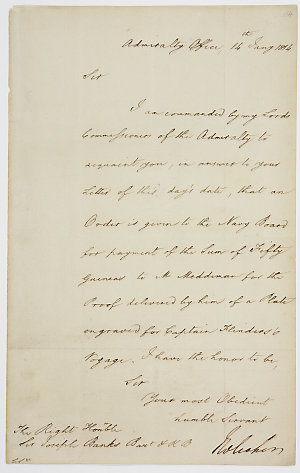 Admiralty Office 14th Jany 1814
Sir
I am commanded by my Lords
Commissioners of the Admiralty to
acquaint you, in answer to your
Letter of this day's date, that an
Order is given to the Navy Board
for payment of the Sum of Fifty
Guineas to Mr Meddiman for the
Proof delivered by him of a Plate
engraved for Captain Flinders's
Voyage. I have the honor to be,
Sir
Your most Obedient
humble Servant
The Right Honble
Sir Joseph Banks Bart K.B